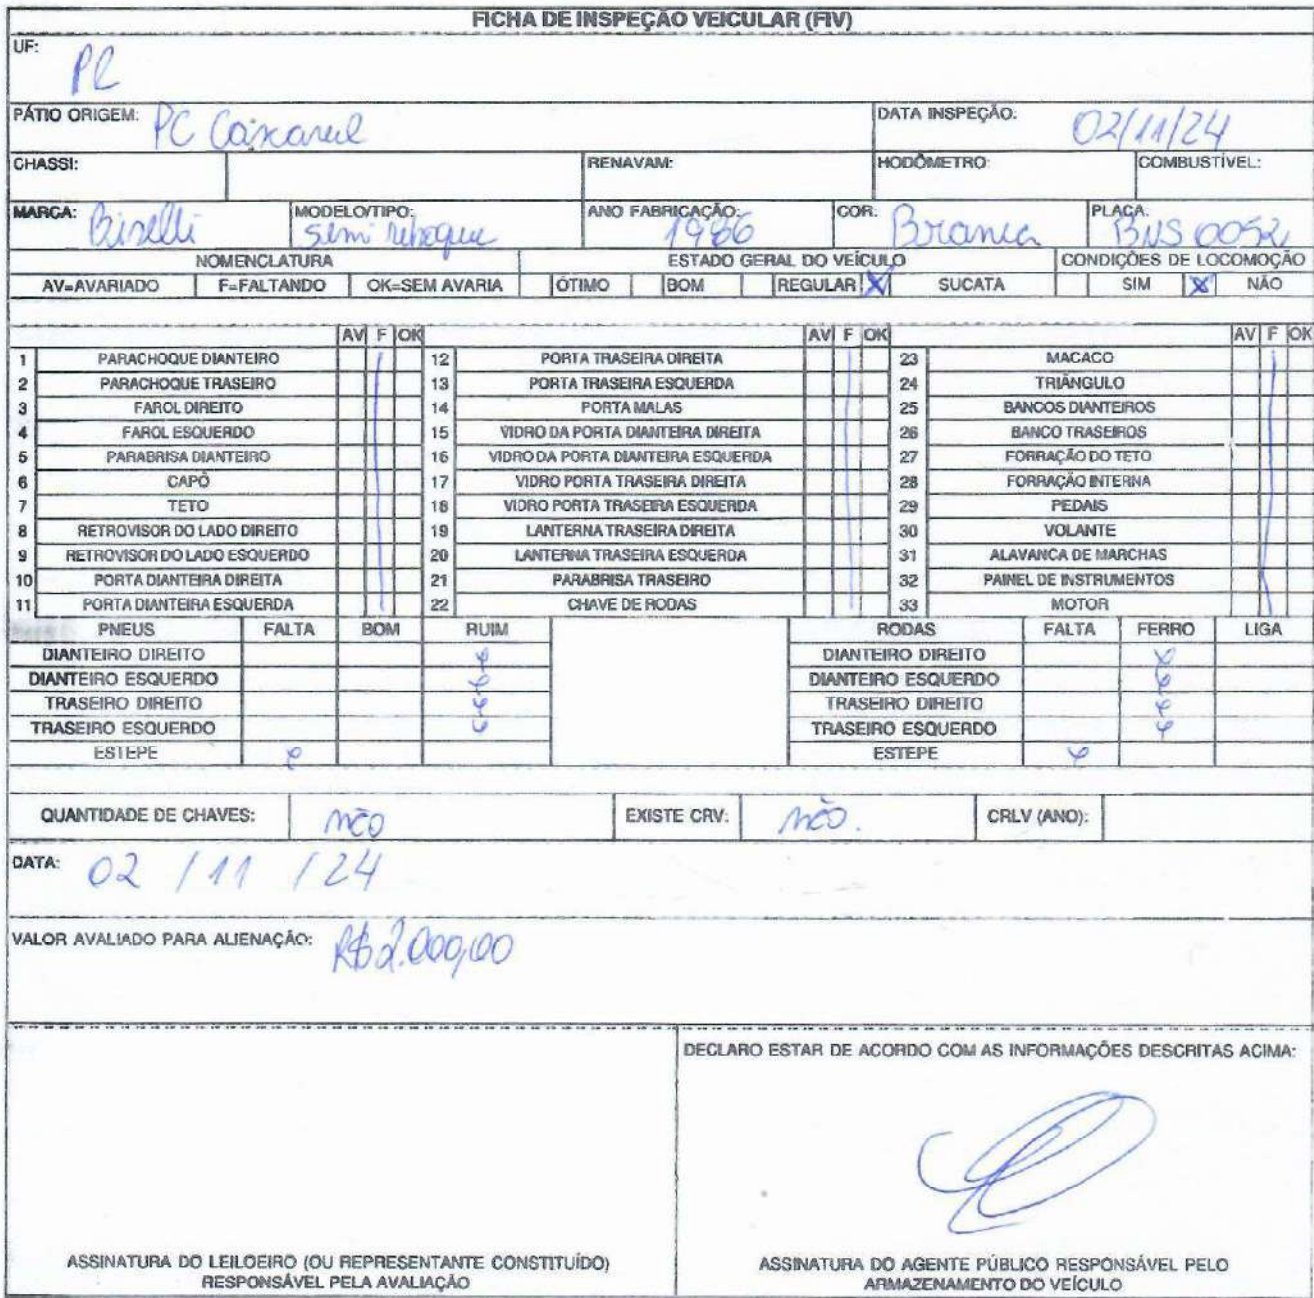 FICHA DE INSPEÇÃO VEICULAR (FIV)
UF: PR
PÁTIO ORIGEM: PC DATA INSPEÇÃO: 02/11/24
CHASSI: RENAVAM: HODÔMETRO: COMBUSTÍVEL:
MARCA: Biselli MODELO/TIPO: semi reboque ANO FABRICAÇÃO: 1986 COR: Branca PLAÇA: BNS 0052
NOMENCLATURA ESTADO GERAL DO VEÍCULO CONDIÇÕES DE LOCOMOÇÃO
AV=AVARIADO F=FALTANDO OK=SEM AVARIA ÓTIMO BOM REGULAR X SUCATA SIM X NÃO
AV F OK AV F OK AV F OK
1 PARACHOQUE DIANTEIRO 12 PORTA TRASEIRA DIREITA 23 MACACO
2 PARACHOQUE TRASEIRO 13 PORTA TRASEIRA ESQUERDA 24 TRIÂNGULO
3 FAROL DIREITO 14 PORTA MALAS 25 BANCOS DIANTEIROS
4 FAROL ESQUERDO 15 VIDRO DA PORTA DIANTEIRA DIREITA 26 BANCO TRASEIROS
5 PARABRISA DIANTEIRO 16 VIDRO DA PORTA DIANTEIRA ESQUERDA 27 FORRAÇÃO DO TETO
6 CAPÔ 17 VIDRO PORTA TRASEIRA DIREITA 28 FORRAÇÃO INTERNA
7 TETO 18 VIDRO PORTA TRASEIRA ESQUERDA 29 PEDAIS
8 RETROVISOR DO LADO DIREITO 19 LANTERNA TRASEIRA DIREITA 30 VOLANTE
9 RETROVISOR DO LADO ESQUERDO 20 LANTERNA TRASEIRA ESQUERDA 31 ALAVANCA DE MARCHAS
10 PORTA DIANTEIRA DIREITA 21 PARABRISA TRASEIRO 32 PAINEL DE INSTRUMENTOS
11 PORTA DIANTEIRA ESQUERDA 22 CHAVE DE RODAS 33 MOTOR
PNEUS FALTA BOM RUIM RODAS FALTA FERRO LIGA
DIANTEIRO DIREITO X DIANTEIRO DIREITO X
DIANTEIRO ESQUERDO X DIANTEIRO ESQUERDO X
TRASEIRO DIREITO X TRASEIRO DIREITO X
TRASEIRO ESQUERDO X TRASEIRO ESQUERDO X
ESTEPE X ESTEPE X
QUANTIDADE DE CHAVES: não EXISTE CRV: não. CRLV (ANO):
DATA: 02 / 11 / 24
VALOR AVALIADO PARA ALIENAÇÃO: R$ 2.000,00
DECLARO ESTAR DE ACORDO COM AS INFORMAÇÕES DESCRITAS ACIMA:
ASSINATURA DO LEILOEIRO (OU REPRESENTANTE CONSTITUÍDO)
RESPONSÁVEL PELA AVALIAÇÃO
ASSINATURA DO AGENTE PÚBLICO RESPONSÁVEL PELO
ARMAZENAMENTO DO VEÍCULO